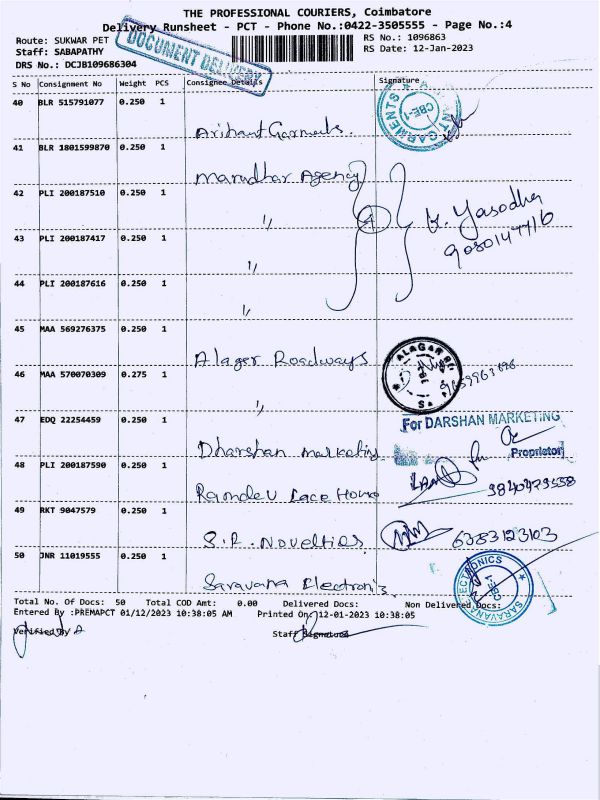 THE PROFESSIONAL COURIERS, Coimbatore
Delivery Runsheet - PCT - Phone No.:0422-3505555 - Page No.:4
Route: SUKWAR PET
RS No.: 1096863
Staff: SABAPATHY
RS Date: 12-Jan-2023
DRS No.: DCJB109686304
DOCUMENT DELIVERY
S No Consignment No Weight PCS Consignee Details Signature
40 BLR 515791077 0.250 1
Arihant Garments. GARMENTS CBE-1
41 BLR 1801599870 0.250 1
Marudhar Agency
42 PLI 200187510 0.250 1
" 4 K. Yasodha
43 PLI 200187417 0.250 1
"
44 PLI 200187616 0.250 1
"
45 MAA 569276375 0.250 1
Alager Roadways ALAGAR
46 MAA 570070309 0.275 1
"
47 EDQ 22254459 0.250 1
For DARSHAN MARKETING
Dharshan marketing Proprietor
48 PLI 200187590 0.250 1
Ramdev Lace House
49 RKT 9047579 0.250 1
S.R. Novelties 6383123103
50 JNR 11019555 0.250 1
Saravana Electronis SARAVANA ELECTRONICS CBE-1
Total No. Of Docs: 50 Total COD Amt: 0.00 Delivered Docs: Non Delivered Docs:
Entered By :PREMAPCT 01/12/2023 10:38:05 AM Printed On: 12-01-2023 10:38:05
Verified By
Staff Signature